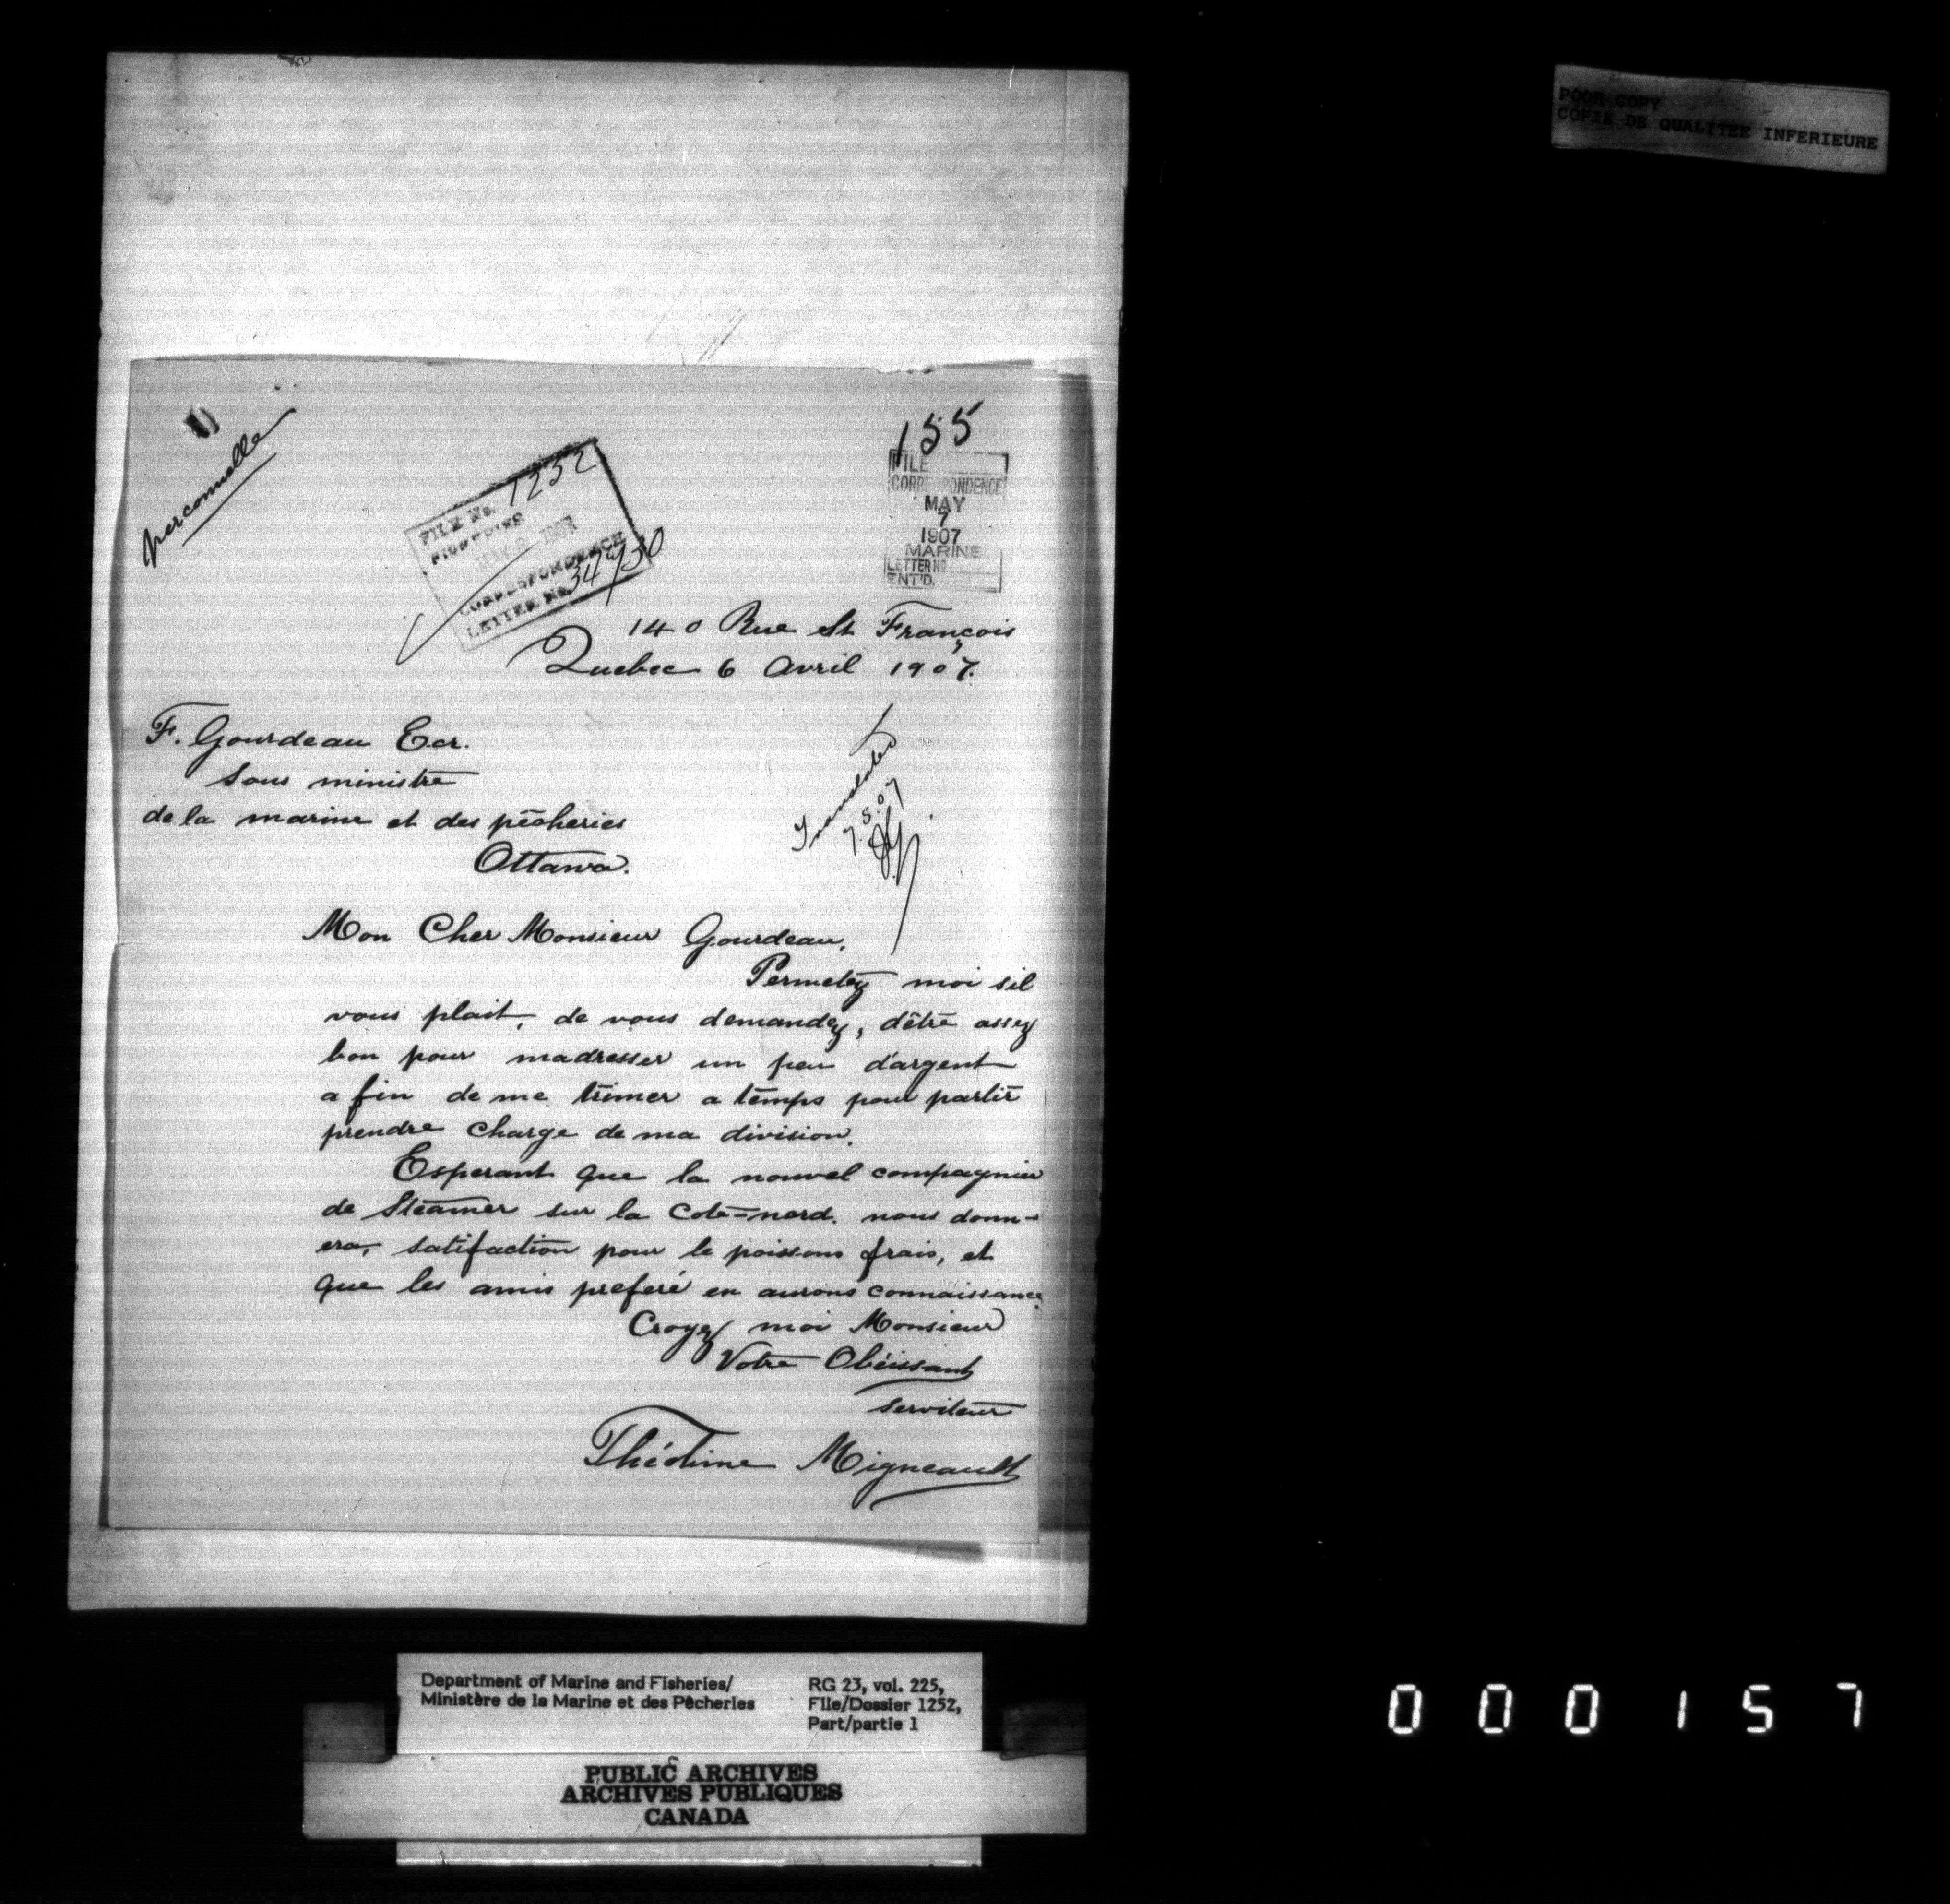 POOR COPY
COPIE DE QUALITEE INFERIEURE
personnelle
155
FILE No. 1252
FISHERIES
MAY 8 1907
CORRESPONDENCE
LETTER No.
FILE
CORRESPONDENCE
MAY
7
1907
MARINE
LETTER NO
ENT'D.
140 Rue St François
Quebec 6 Avril 1907.
F. Gourdeau Ecr.
Sous ministre
de la marine et des pêcheries
Ottawa.
Translated
7.5.07
Mon Cher Monsieur Gourdeau,
Permetez moi sil
vous plait, de vous demandez, dêtre assez
bon pour madresser un peu d'argent
a fin de me trimer a temps pour partir
prendre charge de ma division.
Esperant que la nouvel compagnie
de Steamer sur la Cote=nord. nous donn-
era, satifaction pour le poissons frais, et
que les amis preferé en aurons connaissance.
Croyez moi Monsieur
Votre Obéissant
serviteur
Théotime Migneault
Department of Marine and Fisheries/
Ministère de la Marine et des Pêcheries
RG 23, vol. 225,
File/Dossier 1252,
Part/partie 1
PUBLIC ARCHIVES
ARCHIVES PUBLIQUES
CANADA
000157